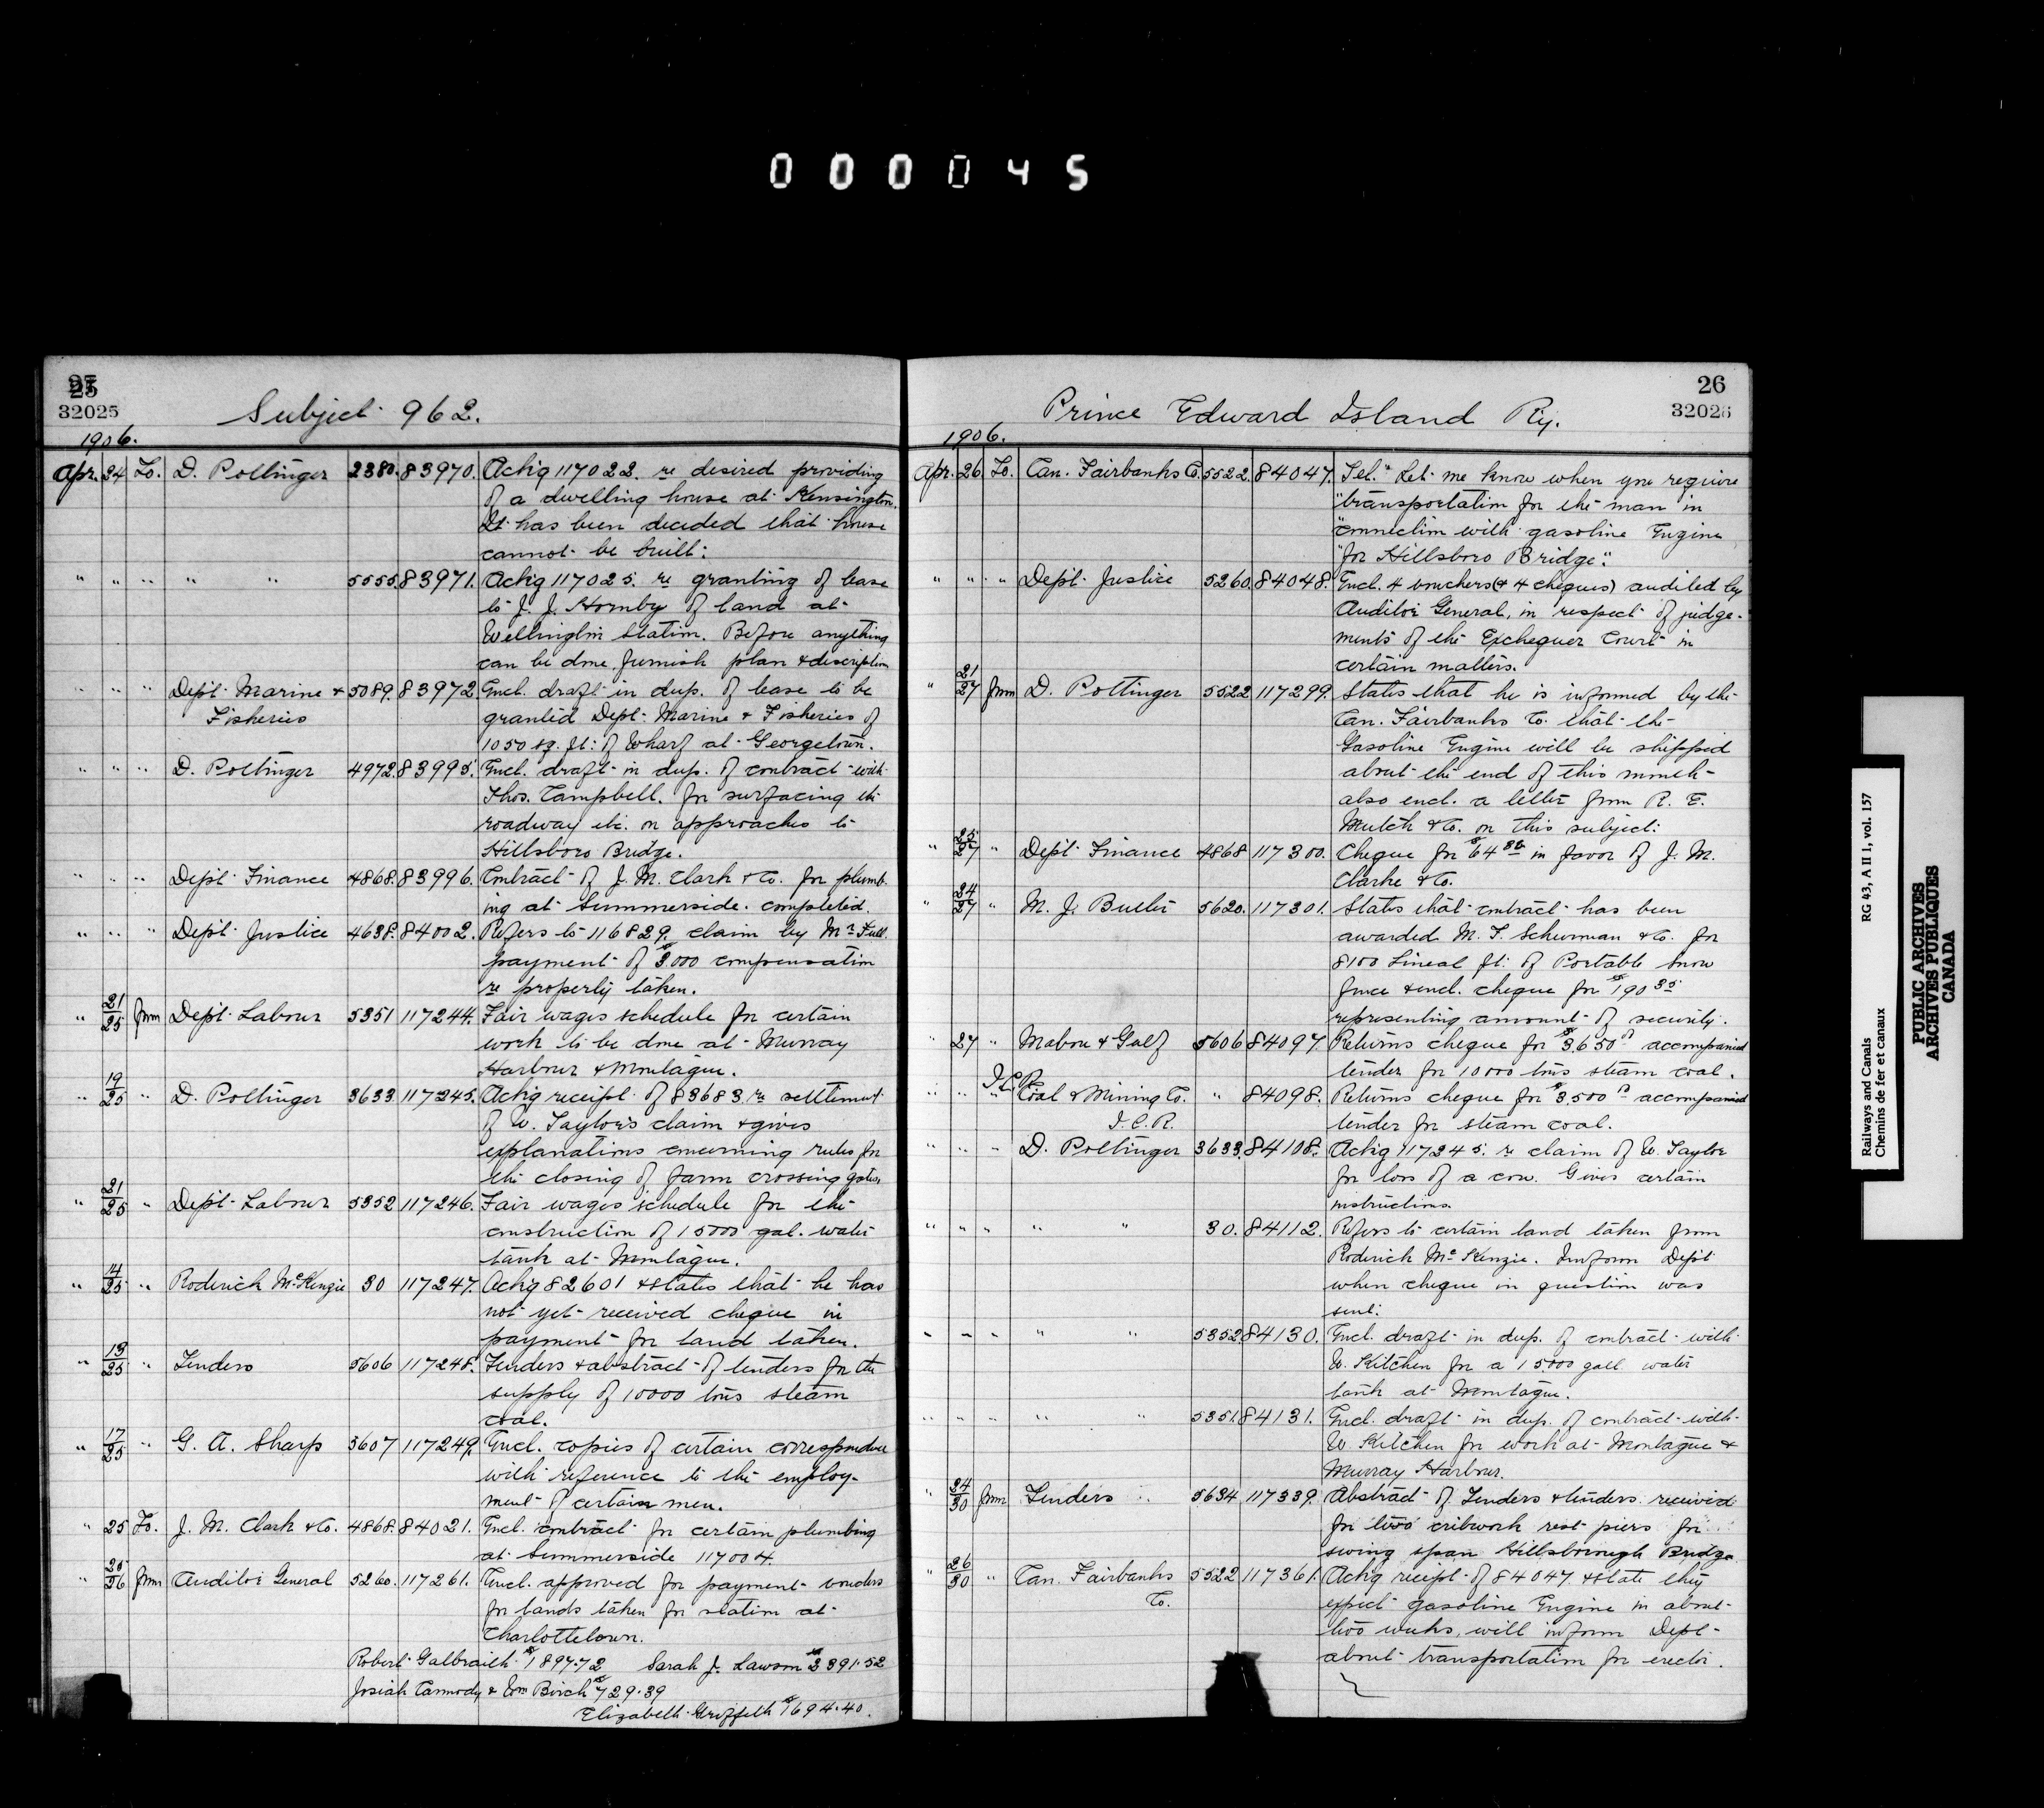 000045
25
32025
Subject 962.
1906.
Apr. 24 To. D. Pottinger 2380. 83970. Ackg 117022 re desired providing
of a dwelling house at Kensington.
It has been decided that house
cannot be built.
" " " " " 5555. 83971. Ackg 117025. re granting of lease
to J. J. Hornby of land at
Wellington Station. Before anything
can be done, furnish plan & description
" " " Dept. Marine & 5089. 83972. Encl. draft in dup. of lease to be
Fisheries granted Dept. Marine & Fisheries of
1050 sq. ft. of Wharf at Georgetown.
" " " D. Pottinger 4972. 83995. Encl. draft in dup. of contract with
Thos. Campbell. for surfacing the
roadway etc. on approaches to
Hillsboro Bridge.
" " " Dept. Finance 4868. 83996. Contract of J. M. Clark & Co. for plumb-
ing at Summerside. completed.
" " " Dept. Justice 4638. 84002. Refers to 116829 claim by Mr
payment of $3.000 compensation
re property taken.
" 21/25 from Dept. Labour 5351 117244. Fair wages schedule for certain
work to be done at Murray
Harbour & Montague.
" 19/25 " D. Pottinger 3633. 117245. Ackg receipt of 83683 re settlement
of W. Taylor's claim & gives
explanations concerning rules for
the closing of farm crossing gates.
" 21/25 " Dept. Labour 5352 117246. Fair wages schedule for the
construction of 15000 gal. water
tank at Montague.
" 14/25 " Roderick McKenzie 30 117247. Ackg 82601 & states that he has
not yet received cheque in
payment for land taken.
" 13/25 " Tenders 5606 117248. Tenders & abstract of tenders for the
supply of 10000 tons steam
coal.
" 17/25 " G. A. Sharp 5607 117249. Encl. copies of certain correspondence
with reference to the employ-
ment of certain men.
" 25 To. J. M. Clark & Co. 4868. 84021. Encl. contract for certain plumbing
at Summerside 117004
" 25/26 from Auditor General 5260. 117261. Encl. approved for payment vouchers
for lands taken for station at
Charlottetown.
Robert Galbraith $1897.72 Sarah J. Lawson $2391.52
Josiah Carmody & Wm Birch $729.39
Elizabeth Griffith $1694.40.
26
32026
Prince Edward Island Ry.
1906.
Apr. 26 To. Can. Fairbanks Co. 5522. 84047. Tel. "Let me know when you require
"transportation for the man in
"connection with gasoline Engine
"for Hillsboro Bridge".
" " " Dept. Justice 5260. 84048. Encl. 4 vouchers (& 4 cheques) audited by
Auditor General, in respect of judge-
ments of the Exchequer Court in
certain matters.
" 21/27 from D. Pottinger 5522 117299. States that he is informed by the
Can. Fairbanks Co. that the
Gasoline Engine will be shipped
about the end of this month
also encl. a letter from R. E.
Mutch & Co. on this subject.
" 25/27 " Dept. Finance 4868 117300. Cheque for $64 88 in favor of J. M.
Clarke & Co.
" 24/27 " M. J. Butler 5620. 117301. States that contract has been
awarded M. F. Schurman & Co. for
8100 Lineal ft. of Portable Snow
fence & encl. cheque for $190 35
representing amount of security.
" 27 " Mabou & Gulf 5606 84097. Returns cheque for $3,650 accompanied
tender for 10000 tons steam coal.
I.C.R.
" " " Coal & Mining Co. " 84098. Returns cheque for $3,500 accompanied
I.C.R. tender for steam coal.
" " " D. Pottinger 3633. 84108. Ackg 117245. re claim of W. Taylor
for loss of a cow. Gives certain
instructions.
" " " " " 30. 84112. Refers to certain land taken from
Roderick McKenzie. Inform Dept
when cheque in question was
sent.
" " " " " 5352. 84130. Encl. draft in dup. of contract with
W. Kitchen for a 15,000 gall water
tank at Montague.
" " " " " 5351. 84131. Encl. draft in dup. of contract with
W. Kitchen for work at Montague &
Murray Harbour.
" 24/30 from Tenders 5634 117339. Abstract of Tenders & tenders received
for two cribwork rest piers for
swing span Hillsborough Bridge
" 26/30 " Can. Fairbanks 5522 117361. Ackg receipt of 84047 & state they
Co. expect gasoline Engine in about
two weeks, will inform Dept
about transportation for erector.
Railways and Canals RG 43, A II 1, vol. 157
Chemins de fer et canaux
PUBLIC ARCHIVES
ARCHIVES PUBLIQUES
CANADA